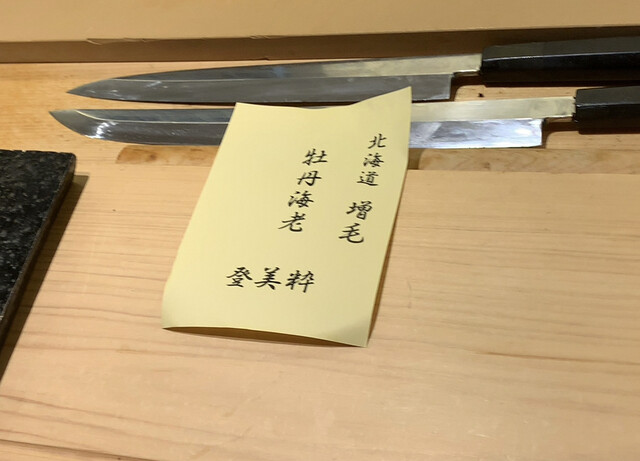 北海道 増毛
牡丹海老
登美粋